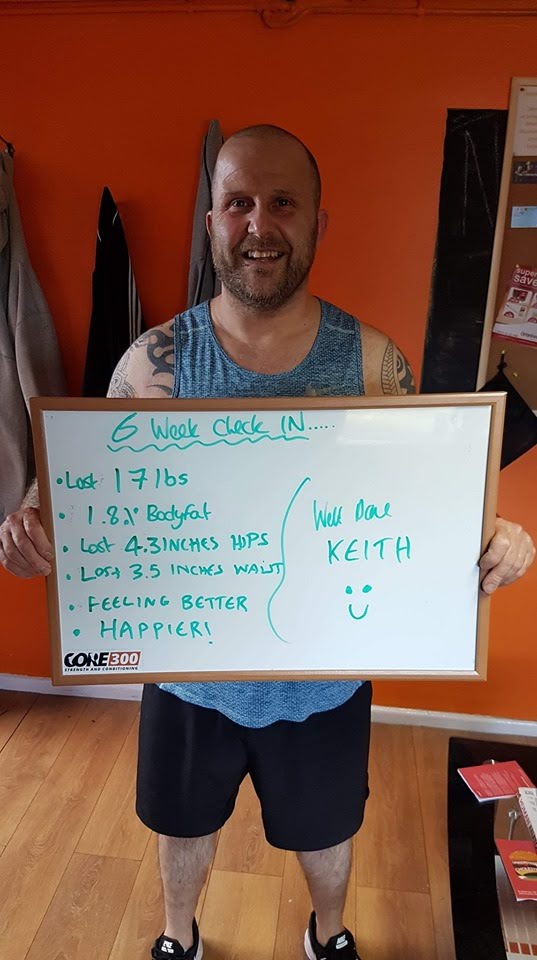 6 Week Check IN.....
• Lost 17 lbs
• 1.8% Bodyfat
• Lost 4.3 INCHES HIPS
• LOST 3.5 INCHES WAIST
• FEELING BETTER
• HAPPIER!
Well Done
KEITH
CORE 300
STRENGTH AND CONDITIONING
super
save